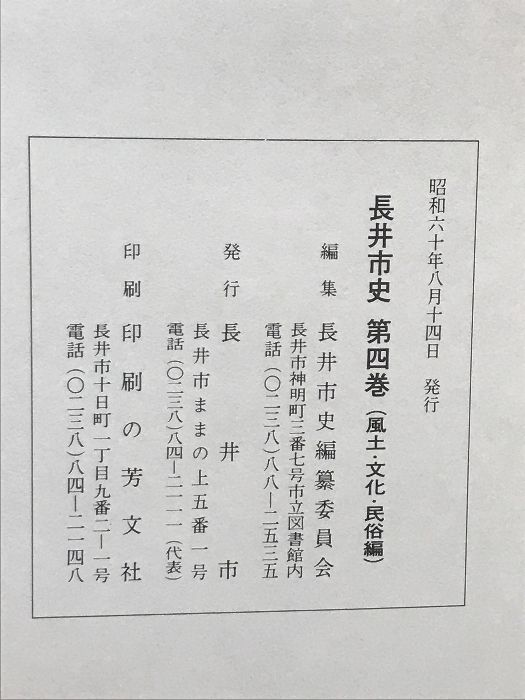 昭和六十年八月十四日 発行
長井市史 第四巻（風土・文化・民俗編）
編集 長井市史編纂委員会
長井市神明町三番七号市立図書館内
電話（〇二三八）八八―二五三五
発行 長井市
長井市ままの上五番一号
電話（〇二三八）八四―二一一一（代表）
印刷 印刷の芳文社
長井市十日町一丁目九番二―一号
電話（〇二三八）八四―二一四八